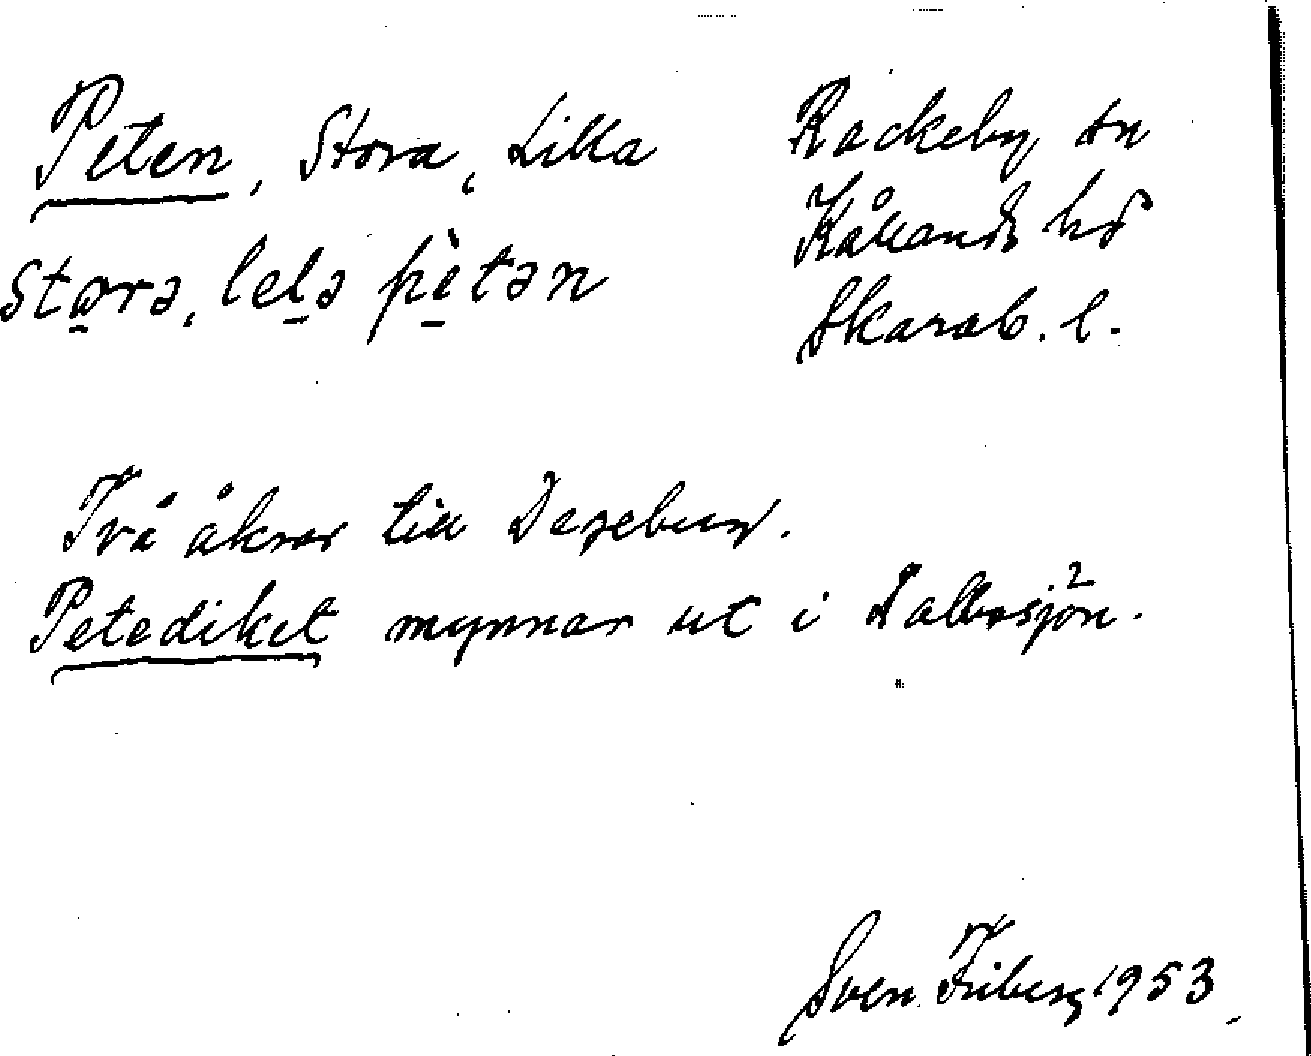 Peten, Stora, Lilla
Rackeby sn
Kållands hd
Skarab. l.
stora, lelə petən
Två åkrar till
Petediket mynnar ut i Dalbosjön.
Sven Friberg 1953